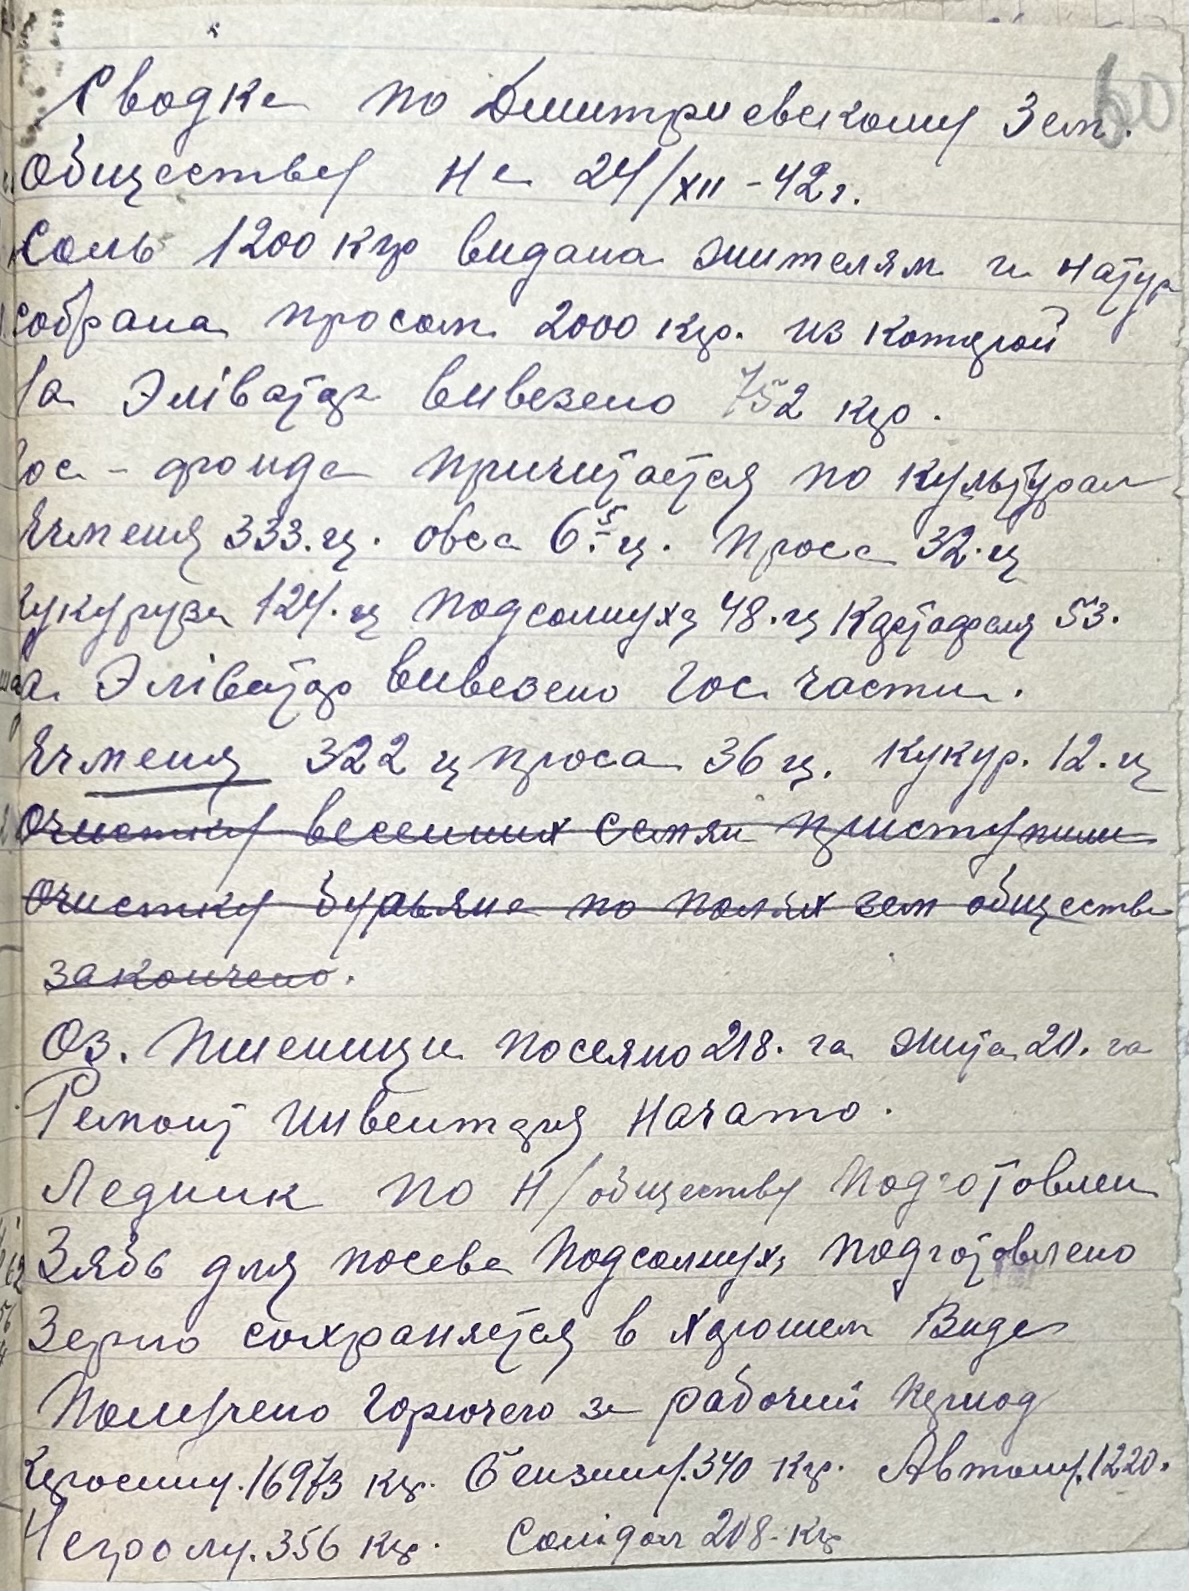 60
Сводка по Дмитриевскому Зем.
Обществу на 24/XII-42г.
Соль 1200 кгр видана жителям и натур
собрана просом 2000 кгр. из которой
На Эліватор вивезено 752 кгр.
Гос-фонда причитается по культурам
Ячменя 333.ц. овса 6.5ц. Проса 32.ц
Кукуруза 124.ц Подсолнуха 48.ц Картофеля 53.
На Элiватор вивезено Гос части.
Ячменя 322 ц проса 36 ц. кукур. 12.ц
Очистку весенних семян приступили
Очистку бурьяна по полях зем общества
закончено.
Оз. Пшеници посеяно 218. га жита 20. га
Ремонт инвентаря Начато.
Ледник по Н/обществу подготовлен
Зябь для посева Подсолнуха подготовлено
Зерно сохраняется в хорошем Виде
Получено Горючего за рабочий период
Керосину.16973 кгр. Бензину.340 кгр. Автолу.1220.
Негролу.356 кгр. Солідол 208-кгр